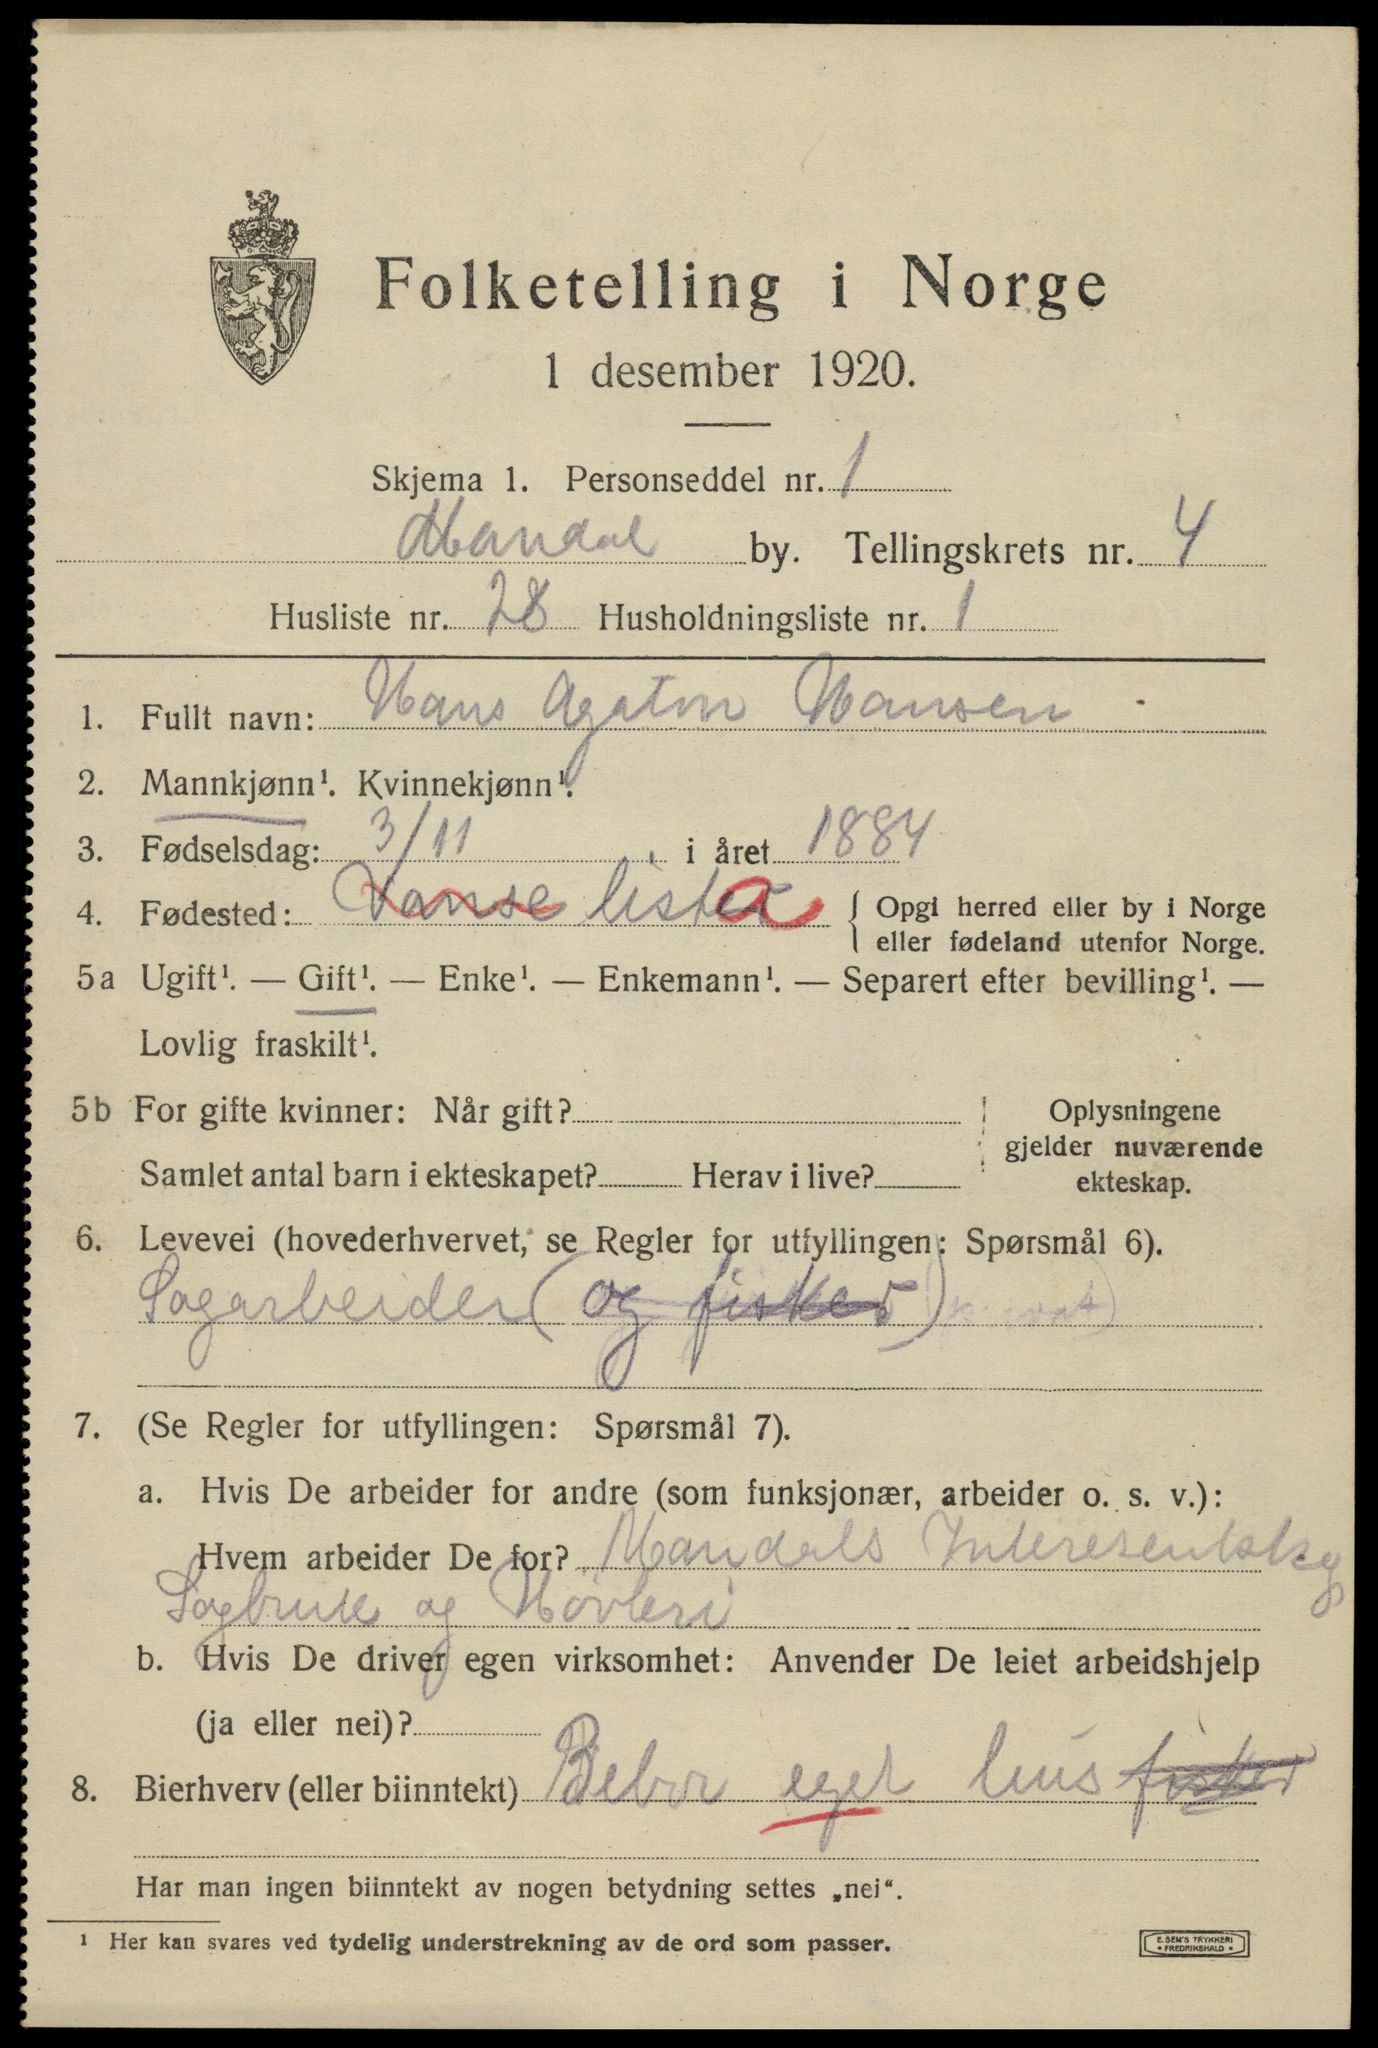 Folketelling i Norge
1 desember 1920.
Skjema 1. Personseddel nr. 1
Mandal by. Tellingskrets nr. 4
Husliste nr. 28 Husholdningsliste nr. 1
1. Fullt navn: Hans Agaton Hansen
2. Mannkjønn¹. Kvinnekjønn¹.
3. Fødselsdag: 3/11 i året 1884
4. Fødested: Vanse lista { Opgi herred eller by i Norge
eller fødeland utenfor Norge.
5a Ugift¹. — Gift¹. — Enke¹. — Enkemann¹. — Separert efter bevilling¹. —
Lovlig fraskilt¹.
5b For gifte kvinner: Når gift? Oplysningene
gjelder nuværende
Samlet antal barn i ekteskapet? Herav i live? ekteskap.
6. Levevei (hovederhvervet, se Regler for utfyllingen: Spørsmål 6).
Sagarbeider (og fisker) privat)
7. (Se Regler for utfyllingen: Spørsmål 7).
a. Hvis De arbeider for andre (som funksjonær, arbeider o. s. v.):
Hvem arbeider De for? Mandals Interesentsk
Sagbruk og Høvleri
b. Hvis De driver egen virksomhet: Anvender De leiet arbeidshjelp
(ja eller nei)?
8. Bierhverv (eller biinntekt) Bebor eget hus fisker
Har man ingen biinntekt av nogen betydning settes „nei“.
¹ Her kan svares ved tydelig understrekning av de ord som passer.
E. SEM'S TRYKKERI
• FREDRIKSHALD •